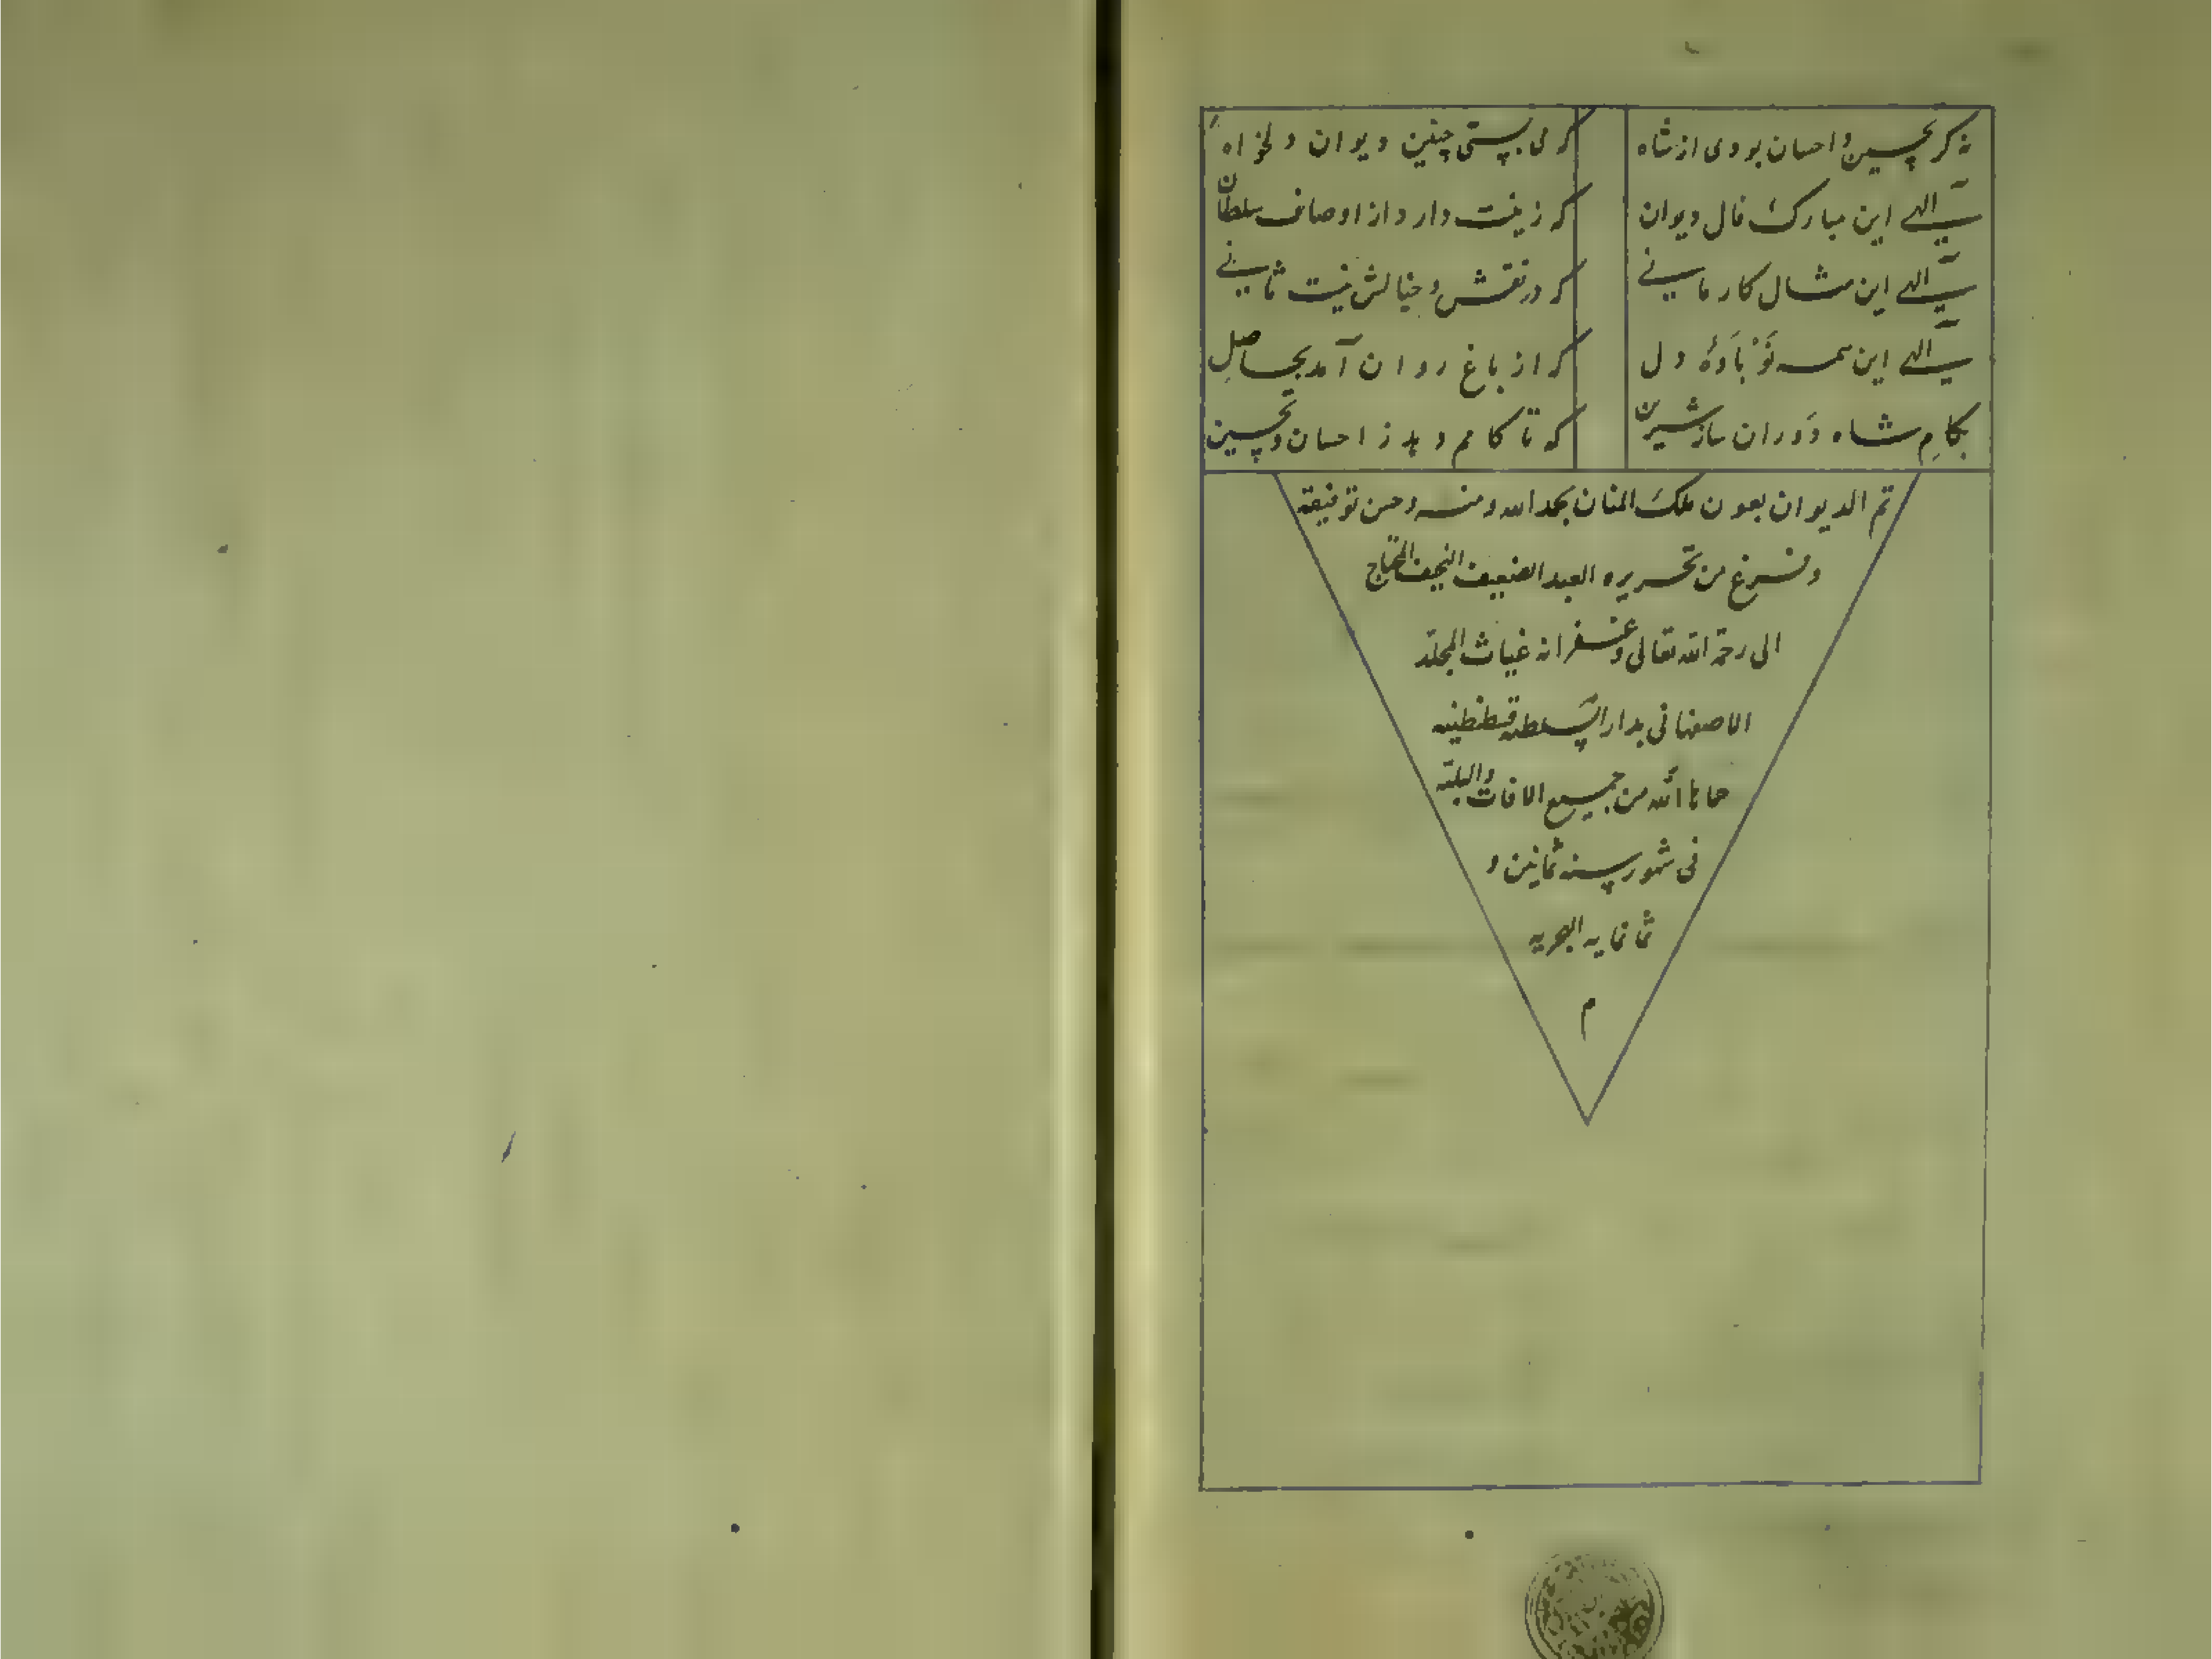 نه گر تحسین و احسان بودی از شاه
که می بستی چنین دیوان دلخواه
الهی این مبارک فال دیوان
که زینت دارد از اوصاف سلطان
الهی این مثال کار مانی
که در نقش و خیالش نیست ثانی
الهی این همه نوباوهٔ دل
که از باغ روان آمد بحاصل
بکام شاه دوران ساز شیرین
که تا کامم دهد ز احسان و تحسین
تم الدیوان بعون ملک المنان بحمد الله و منه و حسن توفیقه
و فرغ من تحریره العبد الضعیف النحیف المحتاج
الی رحمة الله تعالی و غفرانه غیاث المجلد
الاصفهانی بدار السلطنه قسطنطنیه
حماها الله من جمیع الافات والبلیه
فی شهور سنه ثمانین و
ثمانمایه الهجریه
م